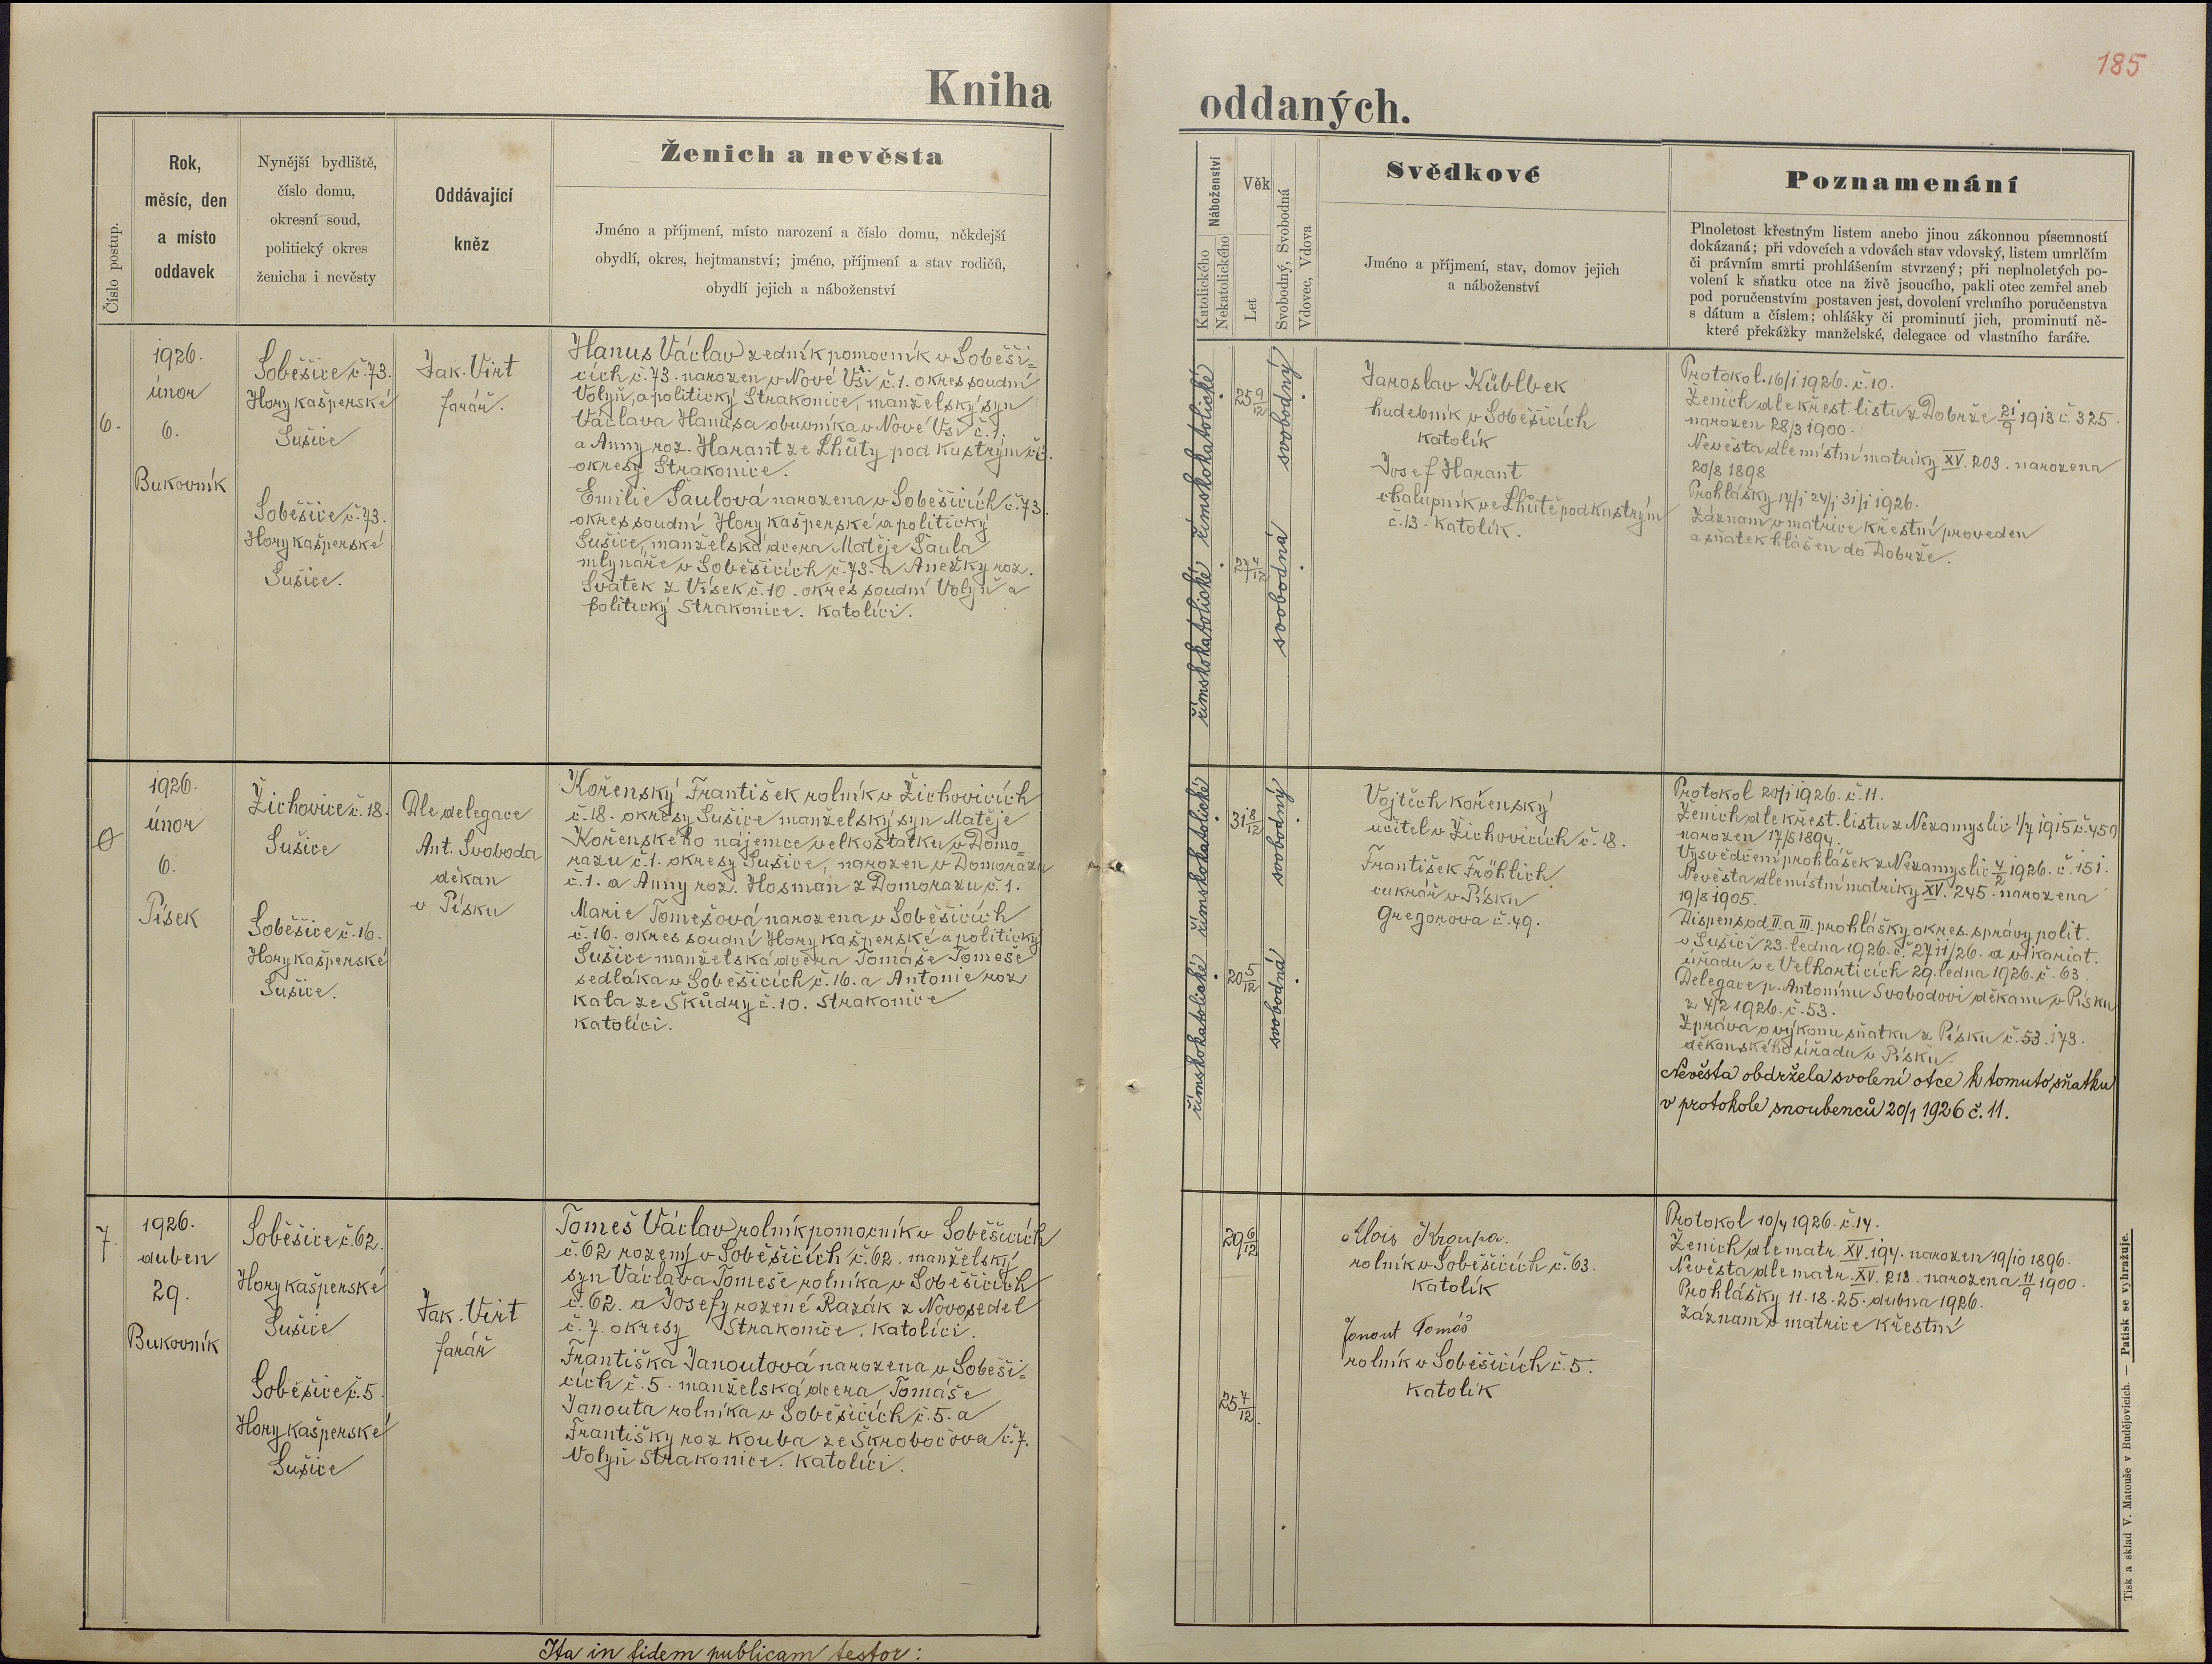 185
Kniha oddaných.
Číslo postup.
Rok,
měsíc, den
a místo
oddavek
Nynější bydliště,
číslo domu,
okresní soud,
politický okres
ženicha i nevěsty
Oddávající
kněz
Ženich a nevěsta
Jméno a příjmení, místo narození a číslo domu, někdejší
obydlí, okres, hejtmanství; jméno, příjmení a stav rodičů,
obydlí jejich a náboženství
Náboženství
Katolického
Nekatolického
Věk
Let
Svobodný, Svobodná
Vdovec, Vdova
Svědkové
Jméno a příjmení, stav, domov jejich
a náboženství
Poznamenání
Plnoletost křestným listem anebo jinou zákonnou písemností
dokázaná; při vdovcích a vdovách stav vdovský, listem umrlčím
či právním smrti prohlášením stvrzený; při neplnoletých po-
volení k sňatku otce na živě jsoucího, pakli otec zemřel aneb
pod poručenstvím postaven jest, dovolení vrchního poručenstva
s dátum a číslem; ohlášky či prominutí jich, prominutí ně-
které překážky manželské, delegace od vlastního faráře.
6.
1926.
únor
6.
Bukovník
Soběšice č. 73.
Hory kašperské
Sušice
Soběšice č. 73.
Hory kašperské
Sušice.
Jak. Virt
farář.
Hanus Václav zedník pomocník v Soběši=
cích č. 73. narozen v Nové Vsi č. 1. okres soudní
Volyň, a politický Strakonice, manželský syn
Václava Hanusa obuvníka v Nové Vsi č. 1.
a Anny roz. Harant ze Lhůty pod Kustrým č.
okresy Strakonice.
Emilie Šaulová narozena v Soběšicích č. 73.
okres soudní Hory kašperské a politický
Sušice, manželská dcera Matěje Šaula
mlynáře v Soběšicích č. 73. a Anežky roz.
Svatek z Vísek č. 10. okres soudní Volyň a
politický Strakonice. Katolíci.
římskokatolické
římskokatolické
25 9/12
27 4/12
svobodný
svobodná
Jaroslav Küblbek
hudebník v Soběšicích
katolík
Josef Harant
chalupník ve Lhůtě pod Kustrým
č. 13. katolík.
Protokol. 16/1 1926. č. 10.
Ženich dle křest. listu z Dobrše 21/9 1913 č. 325.
narozen 28/3 1900.
Nevěsta dle místní matriky XV. 203. narozena
20/8 1898
Prohlášky 17/1 24/1 31/1 1926.
Záznam v matrice křestní proveden
a sňatek hlášen do Dobrše.
0
1926.
únor
6.
Písek
Žichovice č. 18.
Sušice
Soběšice č. 16.
Hory kašperské
Sušice.
Dle delegace
Ant. Svoboda
děkan
v Písku
Kořenský František rolník v Žichovicích
č. 18. okresy Sušice manželský syn Matěje
Kořenského nájemce velkostatku v Domo=
razu č. 1. okresy Sušice, narozen v Domorazu
č. 1. a Anny roz. Hosman z Domorazu č. 1.
Marie Tomešová narozena v Soběšicích
č. 16. okres soudní Hory kašperské a politický
Sušice manželská dcera Tomáše Tomeše
sedláka v Soběšicích č. 16. a Antonie roz
Kala ze Škůdry č. 10. Strakonice
katolíci.
římskokatolické
římskokatolické
31 8/12
20 5/12
svobodný
svobodná
Vojtěch Kořenský
učitel v Žichovicích č. 18.
František Fröhlich
cukrář v Písku
Gregorova č. 49.
Protokol 20/1 1926. č. 11.
Ženich dle křest. listu z Nezamyslic 1/7 1915 č. 459
narozen 17/5 1894.
Vysvědčení prohlášek z Nezamyslic 4/2 1926. č. 151.
Nevěsta dle místní matriky XV. 245. narozena
19/8 1905.
Dispens od II a III. prohlášky okres. správy polit.
v Sušici 23. ledna 1926. č. 2711/26. a vikariat.
úřadu ve Velharticích 29. ledna 1926. č. 63.
Delegace p. Antonínu Svobodovi děkanu v Písku
z 4/2 1926. č. 53.
Zpráva o výkonu sňatku z Písku č. 53. 173.
děkanského úřadu v Písku.
Nevěsta obdržela svolení otce k tomuto sňatku
v protokole snoubenců 20/1 1926 č. 11.
7.
1926.
duben
29.
Bukovník
Soběšice č. 62.
Hory kašperské
Sušice
Soběšice č. 5.
Hory kašperské
Sušice
Jak. Virt
farář
Tomeš Václav rolník pomocník v Soběšicích
č. 62 rozený v Soběšicích č. 62. manželský
syn Václava Tomeše rolníka v Soběšicích
č. 62. a Josefy rozené Razák z Novosedel
č. 7. okresy Strakonice. Katolíci.
Františka Janoutová narozena v Soběši=
cích č. 5. manželská dcera Tomáše
Janouta rolníka v Soběšicích č. 5. a
Františky roz Kouba ze Škrobočova č. 7.
Volyň Strakonice. Katolíci.
29 6/12
25 7/12
Alois Kroupa.
rolník v Soběšicích č. 63.
katolík
Janout Tomáš
rolník v Soběšicích č. 5.
katolík
Protokol 10/4 1926. č. 14.
Ženich dle matr. XV. 194. narozen 19/10 1896.
Nevěsta dle matr. XV. 213. narozena 11/9 1900.
Prohlášky 11. 18. 25. dubna 1926.
Záznam v matrice křestní
Ita in fidem publicam testor:
Tisk a sklad V. Matouše v Budějovicích. — Patisk se vyhražuje.